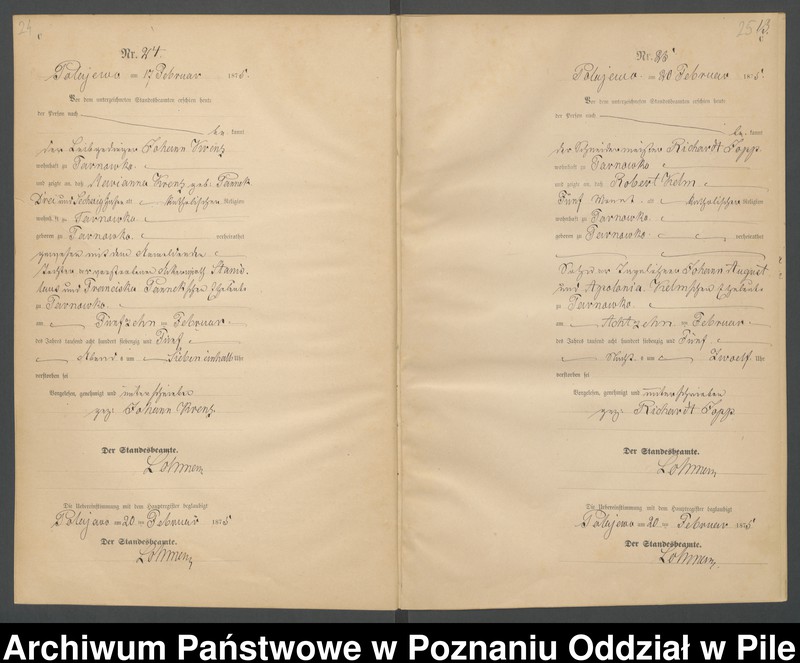 24
Nr. 24.
Polajewo am 17 Februar 1875.
Vor dem unterzeichneten Standesbeamten erschien heute
der Person nach
be kannt
der Leibgedinger Johann Krenz
wohnhaft zu Tarnowko
und zeigte an, daß Marianna Krenz geb: Pannek
Drei und Sechszig Jahre Katholischer Religion
wohnhaft zu Tarnowko
geboren zu Tarnowko verheirathet
gewesen mit dem Anmeldenden
Tochter der verstorbenen Ackerwirth Stanis-
laus und Franciska Pannekschen Eheleute
zu Tarnowko
am Fünfzehn ten Februar
des Jahres tausend acht hundert siebenzig und Fünf
Abend s um Sieben einhalb Uhr
verstorben sei
Vorgelesen, genehmigt und unterschrieben
gez: Johann Krenz
Der Standesbeamte.
Lohmen
Die Uebereinstimmung mit dem Hauptregister beglaubigt
Polajewo am 20 ten Februar 1875
Der Standesbeamte.
Lohmen
25
Nr. 25
Polajewo am 20 Februar 1875.
Vor dem unterzeichneten Standesbeamten erschien heute
der Person nach
be kannt
der Schneidermeister Richardt Topp
wohnhaft zu Tarnowko
und zeigte an, daß Robert Kelm
Fünf Monat Katholischer Religion
wohnhaft zu Tarnowko
geboren zu Tarnowko verheirathet
Sohn der Tagelöhner Johann August
und Apolonia Kelmschen Eheleute
zu Tarnowko
am Achtzehn ten Februar
des Jahres tausend acht hundert siebenzig und Fünf
Nachts um Zwoelf Uhr
verstorben sei
Vorgelesen, genehmigt und unterschrieben
gez: Richardt Topp
Der Standesbeamte.
Lohmen
Die Uebereinstimmung mit dem Hauptregister beglaubigt
Polajewo am 20 ten Februar 1875
Der Standesbeamte.
Lohmen
Archiwum Państwowe w Poznaniu Oddział w Pile